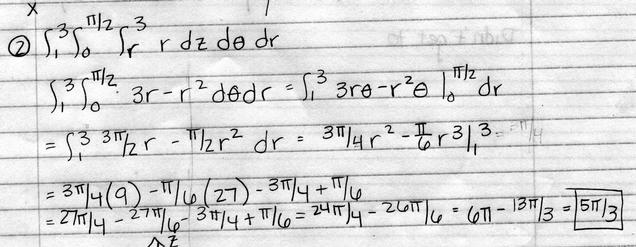 x
② ∫₁³ ∫₀^π/2 ∫ᵣ³ r dz dθ dr
∫₁³ ∫₀^π/2 3r - r² dθ dr = ∫₁³ 3rθ - r²θ |₀^π/2 dr
= ∫₁³ 3π/2 r - π/2 r² dr = 3π/4 r² - π/6 r³ |₁³
= 3π/4 (9) - π/6 (27) - 3π/4 + π/6
= 27π/4 - 27π/6 - 3π/4 + π/6 = 24π/4 - 26π/6 = 6π - 13π/3 = 5π/3
z